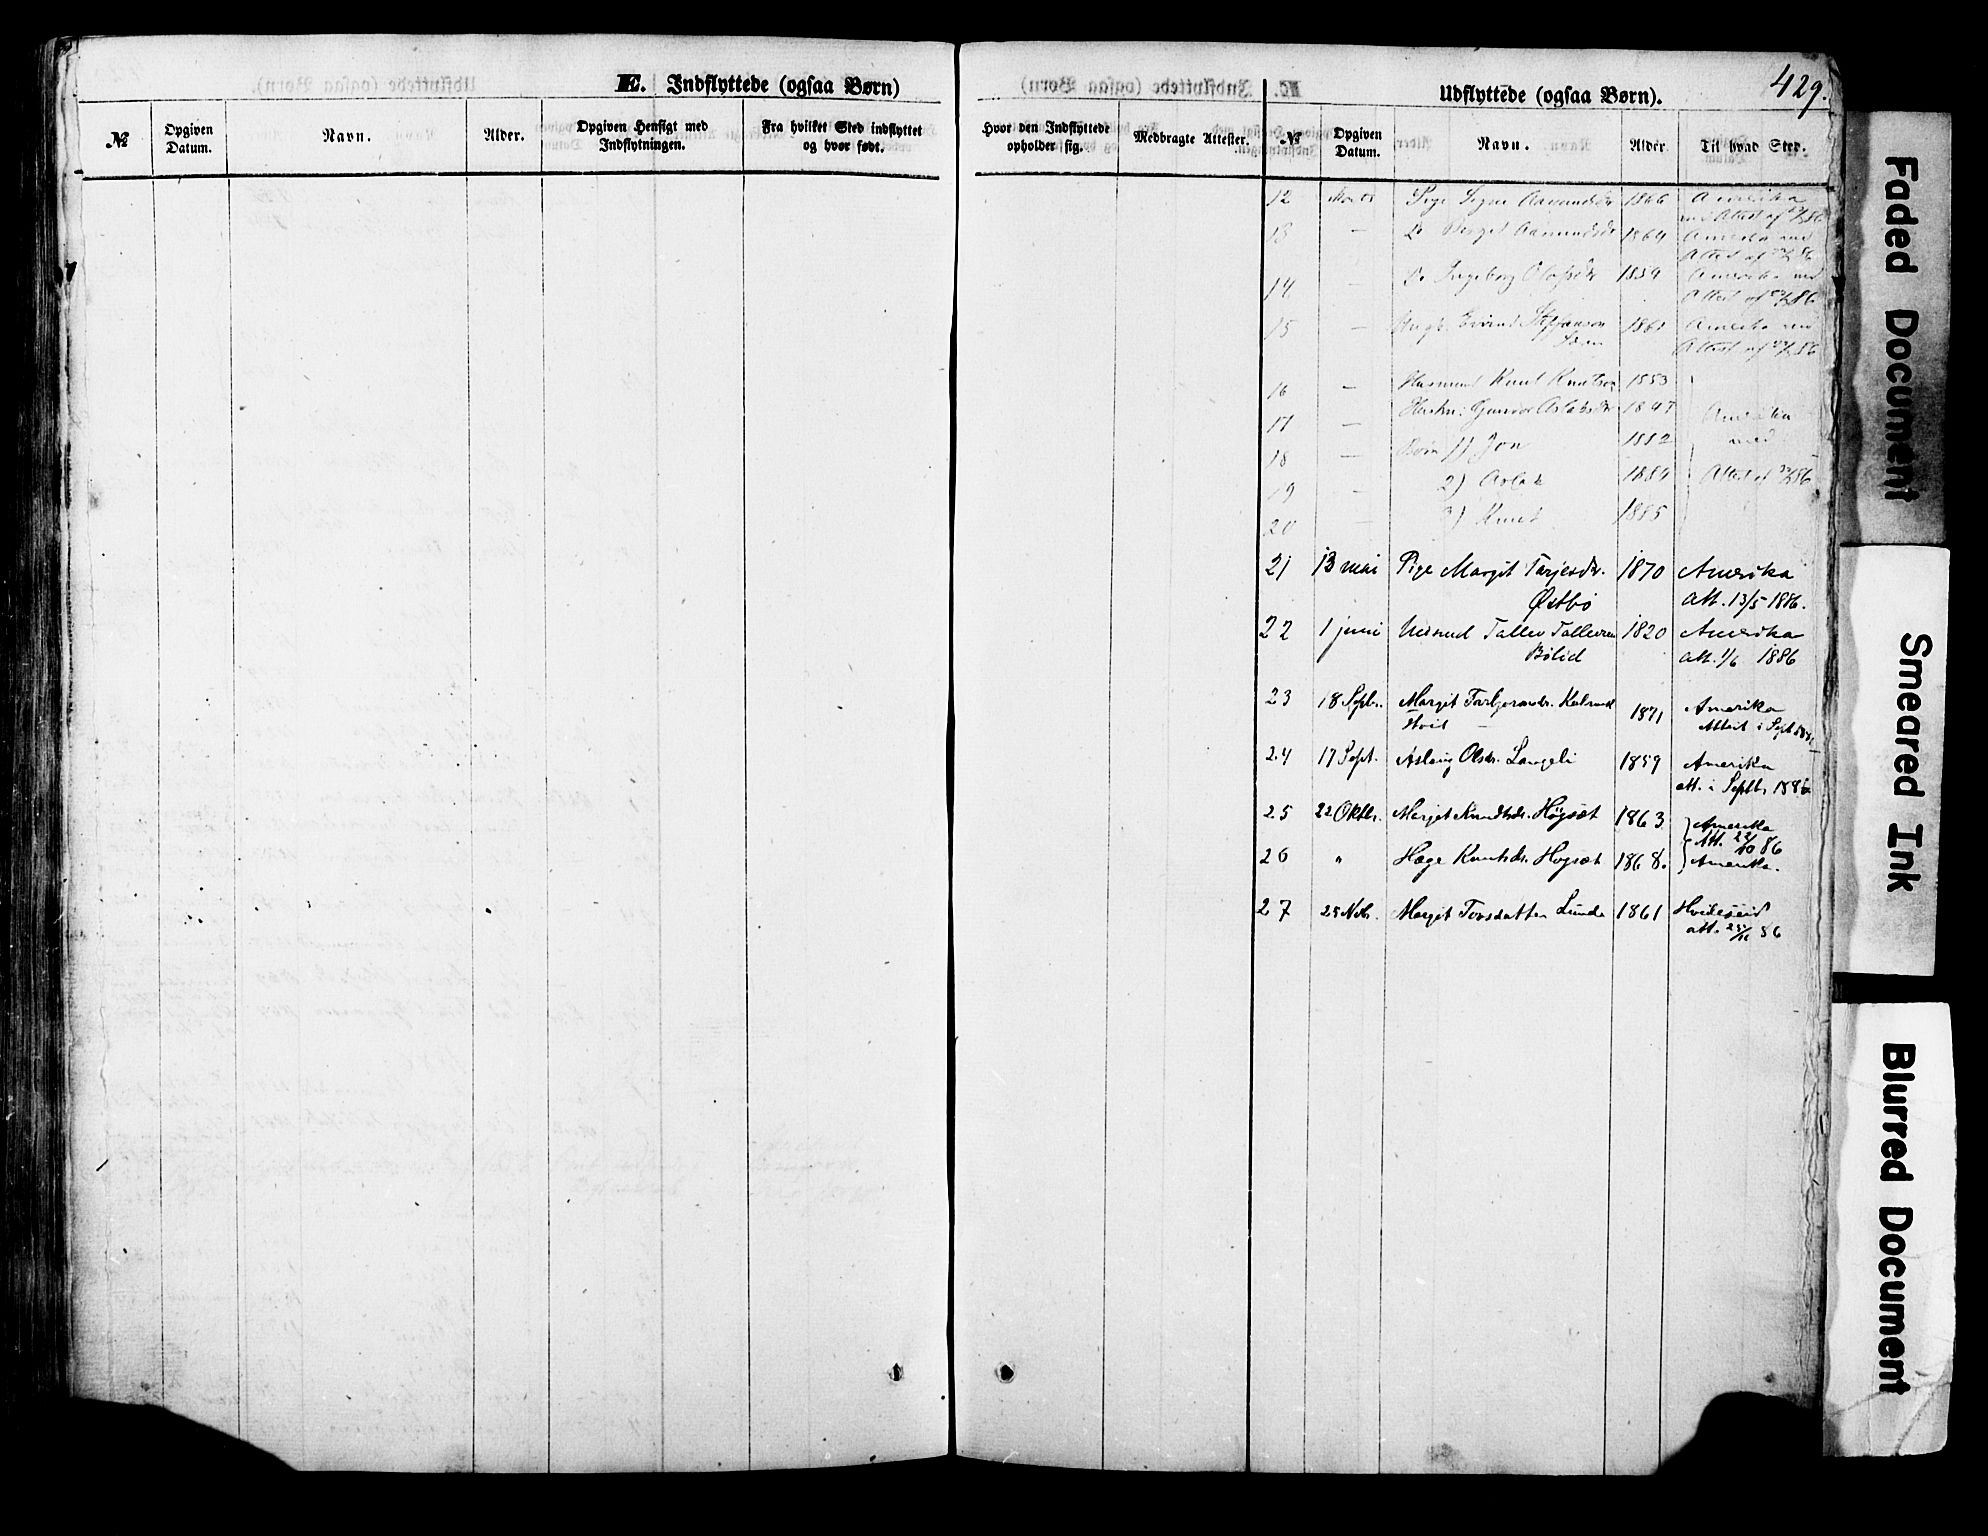 E. Indflyttede (ogsaa Børn)
Udflyttede (ogsaa Børn).
429.
№
Opgiven Datum.
Navn.
Alder.
Opgiven Hensigt med Indflytningen.
Fra hvilket Sted indflyttet og hvor født.
Hvor den Indflyttede opholder sig.
Medbragte Attester.
№
Opgiven Datum.
Navn.
Alder
Til hvad Sted.
12 Pige Signe Aamundsdr 1866 Amerika
Attest af 86
13 — Do Aamundsdr 1864 Amerika med
Attest af 86
14 — Do Ingeborg Olafsdr 1859 Amerika med
Attest af 86
15 — Eivind 1861 Amerika med
Attest af 86
16 — Husmand Knut Knutson 1853
17 — Gunvor Aslaksdr 1847 Amerika
18 — Børn 1) Jon 1882 med
19 — 2) Aslak 1884 Attest af 86
20 — 3) Knut 1885
21 13 mai Pige Margit Tarjesdr. 1870 Amerika
Østbø att. 13/5 1886.
22 1 juni Tallev Tallevsen 1820 Amerika
Bølid att. 1/6 1886
23 18 Septr. Margit Torbjørnsdr. 1871 Amerika
Attest i Sept
24 17 Sept. Aslaug Olsdr. Langeli 1859 Amerika
att. i Septb. 1886
25 22 Oktbr. Margit Knudtsdr. Høgsæt 1863 } Amerika
Att. 22/10 86
26 " Hæge Knutsdr. Høgsæt 1868. } Amerika.
27 25 Nvbr. Margit Torsdatter Lunde 1861 Hvideseid
att. 25/11 86
Faded Document
Smeared Ink
Blurred Document